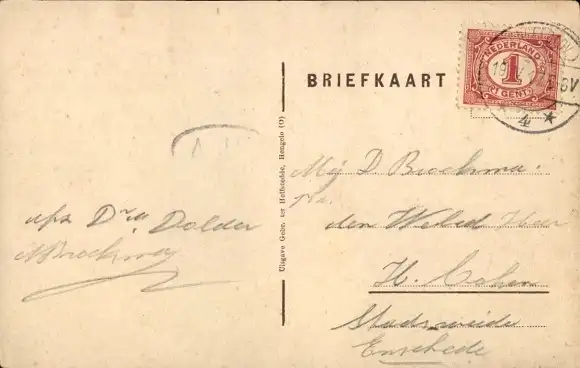 BRIEFKAART
NEDERLAND
1
CENT
4
Uitgave Gebr. ter Hofstedde, Hengelo (O)
afz. Dr. v. Dolder
A Brockma
Mej D. Brockma.
p/a.
den Weled Heer
H. Cohen
Stadsweide
Enschede